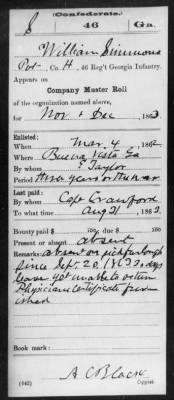 (Confederate.)
S 46 Ga.
William Simmons
Pvt., Co. H, 46 Reg't Georgia Infantry.
Appears on
Company Muster Roll
of the organization named above,
for Nov & Dec, 1863.
Enlisted:
When Mar. 4, 1862
Where Buena Vista Ga
By whom Taylor
Period three years or the war
Last paid:
By whom Capt Crawford
To what time Aug 31, 1863.
Bounty paid $ 100; due $ 100
Present or absent absent
Remarks: absent on sick furlough
since Sept. 20, 1863 30 days
leave yet unable to return
Physicians Certificate furn
ished
Book mark:
A C Black
(642) Copyist.